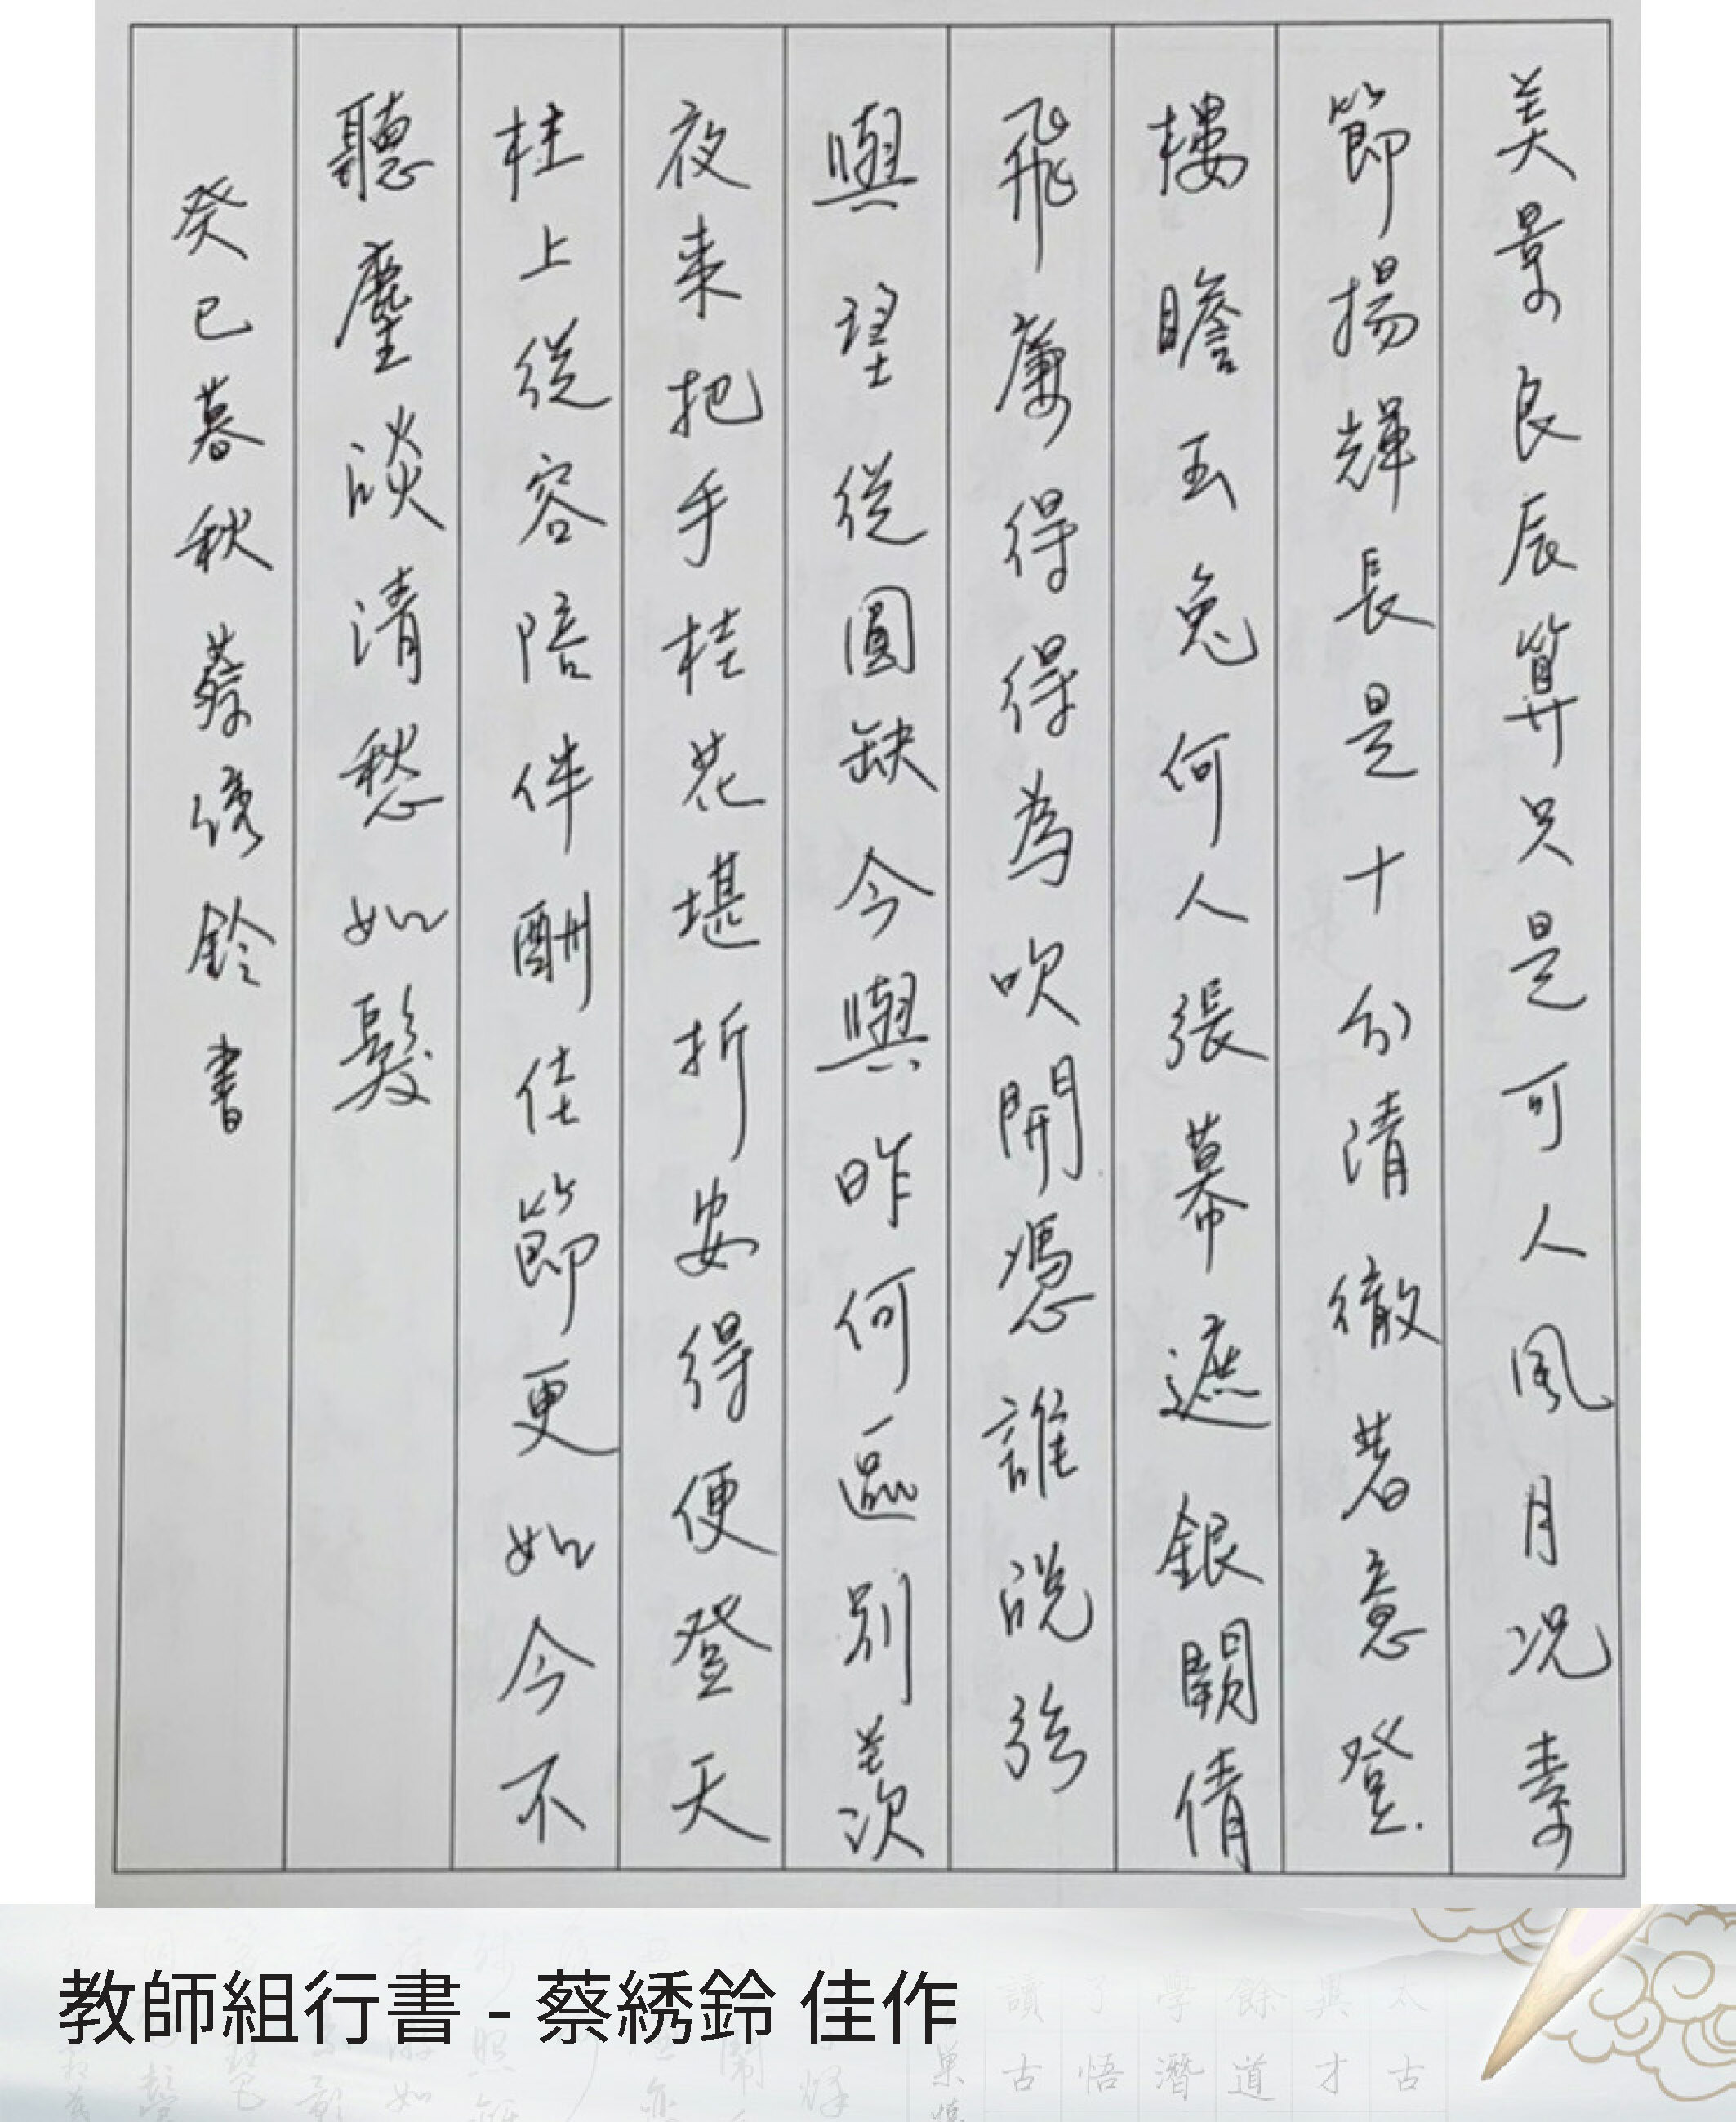 美景良辰算只是可人風月況素
節揚輝長是十分清徹著意登
樓瞻玉兔何人張幕遮銀闕倩
飛廉得得為吹開憑誰說弦
與望從圓缺今與昨何區別羨
夜來把手桂花堪折安得便登天
柱上從容陪伴酬佳節更如今不
聽麈談清愁如髮
癸巳暮秋蔡綉鈴書
教師組行書 - 蔡綉鈴 佳作